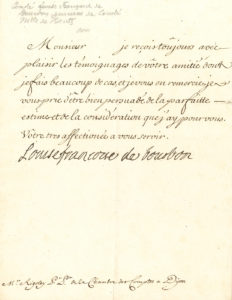 Louise françoise de Bourbon
Monsieur je reçois toujours avec
plaisir les temoignages de vôtre amitié dont
je fais beaucoup de cas et je vous en remercie, je
vous prie d'être bien persuadé de la parfaite
estime et de la consideration que j'ay pour vous.
Vôtre tres affectionée a vous servir.
Louise francoise de bourbon
Mr. Rigoley P. P. de la Chambre des Comptes a Dijon